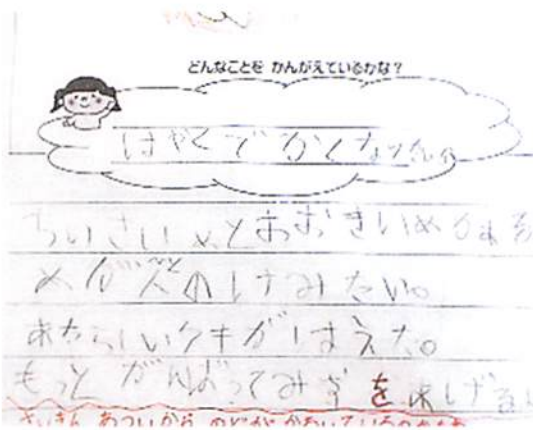 どんなことを かんがえているかな？
はやくでかくなってね。
ちいさいめとおおきいめがある
めがひとのけみたい。
あたらしいクキがはえた。
もっとがんばってみずをあげる
さいきん あついから のどが かわいているのかもね